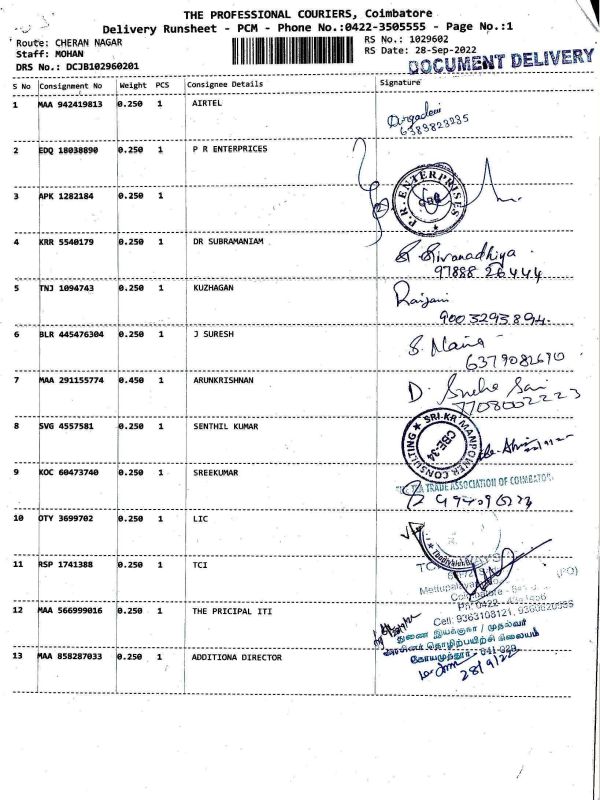 THE PROFESSIONAL COURIERS, Coimbatore
Delivery Runsheet - PCM - Phone No.:0422-3505555 - Page No.:1
Route: CHERAN NAGAR
RS No.: 1029602
Staff: MOHAN
RS Date: 28-Sep-2022
DRS No.: DCJB102960201
DOCUMENT DELIVERY
S No Consignment No Weight PCS Consignee Details Signature
1 MAA 942419813 0.250 1 AIRTEL
Durgadevi
6383823235
2 EDQ 18038890 0.250 1 P R ENTERPRICES
P.R. ENTERPRISES
3 APK 1282184 0.250 1
4 KRR 5540179 0.250 1 DR SUBRAMANIAM
97888 26444
5 TNJ 1094743 0.250 1 KUZHAGAN
Ranjani
9003293894
6 BLR 445476304 0.250 1 J SURESH
6379082690
7 MAA 291155774 0.450 1 ARUNKRISHNAN
D. Sneha Sai
7708002223
8 SVG 4557581 0.250 1 SENTHIL KUMAR
SRI-KR MANPOWER CONSULTING
CBE-34
9 KOC 60473740 0.250 1 SREEKUMAR
TRADE ASSOCIATION OF COIMBATORE
10 OTY 3699702 0.250 1 LIC
11 RSP 1741388 0.250 1 TCI
Coimbatore
Ph: 0422
Cell: 9363108121,
12 MAA 566999016 0.250 1 THE PRICIPAL ITI
துணை இயக்குநர் / முதல்வர்
தொழிற்பயிற்சி நிலையம்
கோயமுத்தூர் - 641 029
13 MAA 858287033 0.250 1 ADDITIONA DIRECTOR
28/9/22